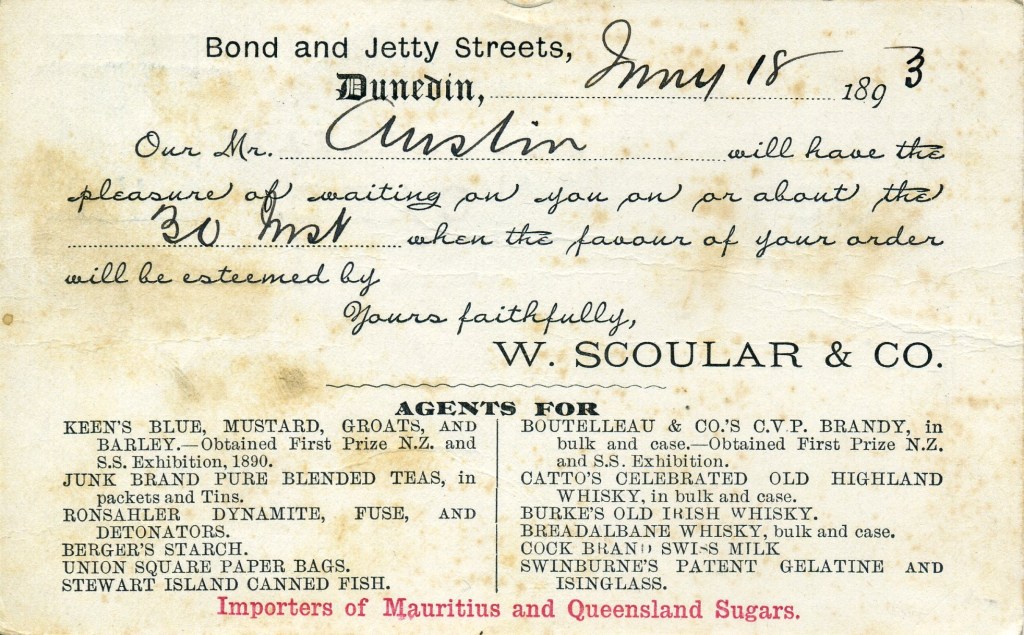 Bond and Jetty Streets,
Dunedin, 18 1893
Our Mr. Austin will have the
pleasure of waiting on you on or about the
30 Inst when the favour of your order
will be esteemed by
Yours faithfully,
W. SCOULAR & CO.
AGENTS FOR
KEEN'S BLUE, MUSTARD, GROATS, AND
BARLEY.—Obtained First Prize N.Z. and
S.S. Exhibition, 1890.
JUNK BRAND PURE BLENDED TEAS, in
packets and Tins.
RONSAHLER DYNAMITE, FUSE, AND
DETONATORS.
BERGER'S STARCH.
UNION SQUARE PAPER BAGS.
STEWART ISLAND CANNED FISH.
BOUTELLEAU & CO.'S C.V.P. BRANDY, in
bulk and case.—Obtained First Prize N.Z.
and S.S. Exhibition.
CATTO'S CELEBRATED OLD HIGHLAND
WHISKY, in bulk and case.
BURKE'S OLD IRISH WHISKY.
BREADALBANE WHISKY, bulk and case.
COCK BRAND SWISS MILK
SWINBURNE'S PATENT GELATINE AND
ISINGLASS.
Importers of Mauritius and Queensland Sugars.